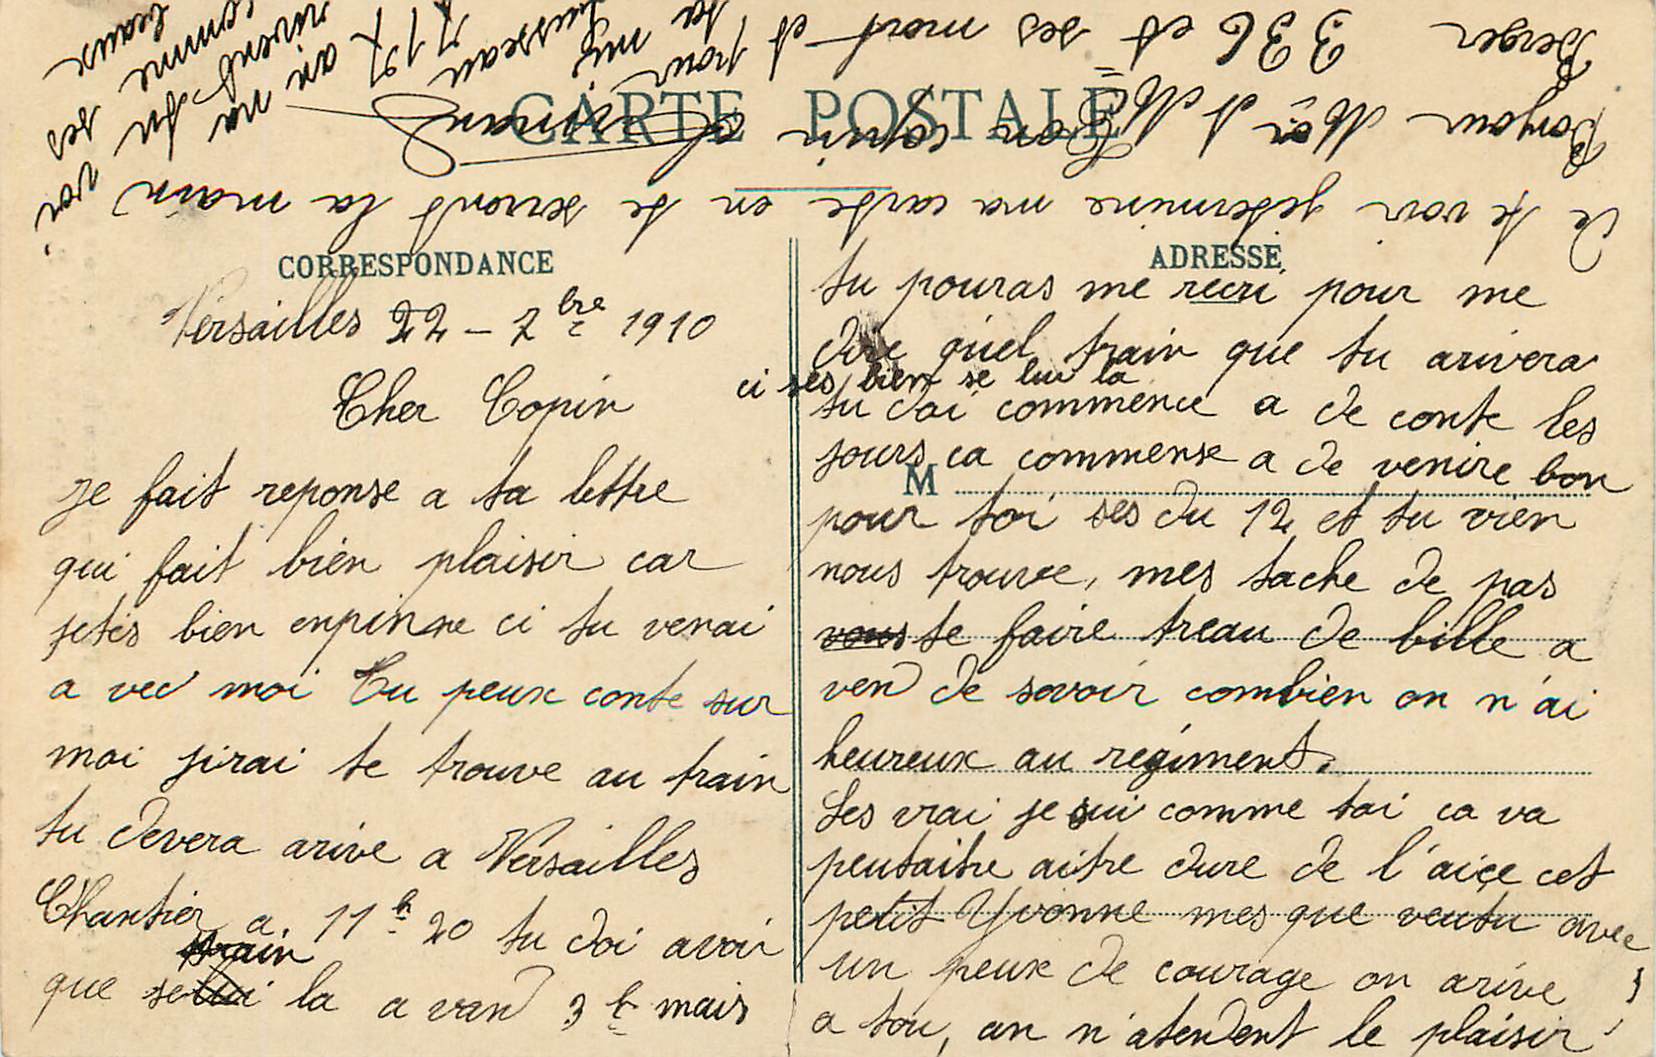 CARTE POSTALE
CORRESPONDANCE
ADRESSE
M
Versailles 22 - 7bre 1910
Cher Copin
je fait reponse a ta lettre
qui fait bien plaisir car
jetés bien enpinne ci tu verai
a vec moi Tu peux conte sur
moi jirai te trouve au train
tu devera arive a Versailles
Chantier a 11h 20 tu doi avoir
train
que selui la a van 3h mais
tu pouras me recri pour me
dire quel train que tu arivera
ci ses bien se lui la
tu doi commence a de conte les
jours ca commense a de venire bon
pour toi ses du 12 et tu vien
nous trouve, mes tache de pas
vous te faire treau de bille a
ven de savoir combien on n'ai
heureux au regiment.
Ses vrai je sui comme toi ca va
peutaitre aitre dure de l'aiçe cet
petit Yvonne mes que veutu avec
un peux de courage on arive
a tou, an n'atendent le plaisir
de te voir jetermine ma carte en te serront la main
ton copin
Bonjour
Berger 336 et ses mort et pour ta
717